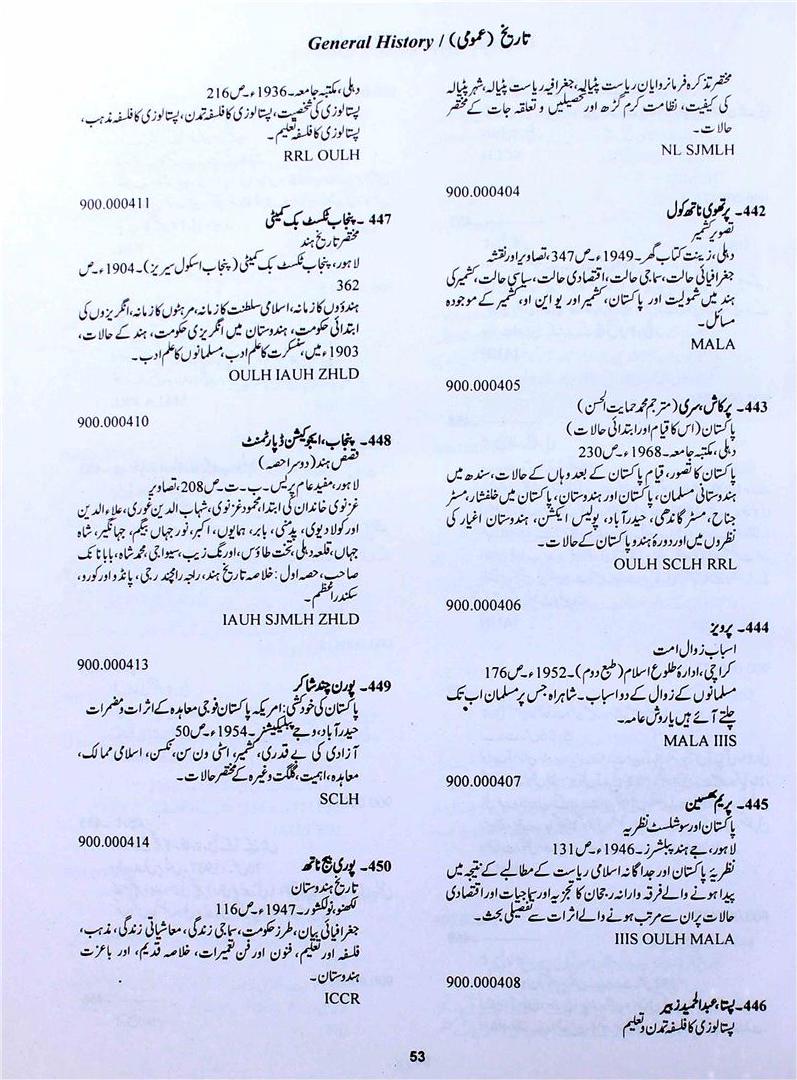 تاریخ (عمومی) / General History
مختصر تذکرہ فرمانروایان ریاست پٹیالہ، جغرافیہ ریاست پٹیالہ، شہر پٹیالہ
کی کیفیت، نظامت کرم گڑھ اور تحصیلیں و تعلقہ جات کے مختصر
حالات۔
NL SJMLH
900.000404
442۔ پرتھوی ناتھ کول
تصویر کشمیر
دہلی، زینت کتاب گھر۔ 1949ء۔ ص 347، تصاویر اور نقشہ
جغرافیائی حالت، سماجی حالت، اقتصادی حالت، سیاسی حالت، کشمیر کی
ہند میں شمولیت اور پاکستان، کشمیر اور یو این او، کشمیر کے موجودہ
مسائل۔
MALA
900.000405
443۔ پرکاش، سری (مترجم محمد حمایت الحسن)
پاکستان (اس کا قیام اور ابتدائی حالات)
دہلی، مکتبہ جامعہ۔ 1968ء۔ ص 230
پاکستان کا تصور، قیام پاکستان کے بعد وہاں کے حالات، سندھ میں
ہندوستانی مسلمان، پاکستان اور ہندوستان، پاکستان میں خلفشار، مسٹر
جناح، مسٹر گاندھی، حیدرآباد، پولیس ایکشن، ہندوستان اغیار کی
نظروں میں اور دورۂ ہند و پاکستان کے حالات۔
OULH SCLH RRL
900.000406
444۔ پرویز
اسباب زوال امت
کراچی، ادارۂ طلوع اسلام (طبع دوم)۔ 1952ء۔ ص 176
مسلمانوں کے زوال کے دو اسباب۔ شاہراہ جس پر مسلمان اب تک
چلتے آئے ہیں یا روش عامہ۔
MALA IIIS
900.000407
445۔ پریم بھسین
پاکستان اور سوشلسٹ نظریہ
لاہور، جے ہند پبلشرز۔ 1946ء۔ ص 131
نظریۂ پاکستان اور جداگانہ اسلامی ریاست کے مطالبے کے نتیجہ میں
پیدا ہونے والے فرقہ وارانہ رجحان کا تجزیہ اور سماجیات اور اقتصادی
حالات پر ان سے مرتب ہونے والے اثرات سے تفصیلی بحث۔
IIIS OULH MALA
900.000408
446۔ پستا، عبدالحمید زبیر
پستالوزی کا فلسفہ تمدن و تعلیم
دہلی، مکتبہ جامعہ۔ 1936ء۔ ص 216
پستالوزی کی شخصیت، پستالوزی کا فلسفہ تمدن، پستالوزی کا فلسفہ مذہب،
پستالوزی کا فلسفہ تعلیم۔
RRL OULH
900.000411
447۔ پنجاب ٹکسٹ بک کمیٹی
مختصر تاریخ ہند
لاہور، پنجاب ٹکسٹ بک کمیٹی (پنجاب اسکول سیریز)۔ 1904ء۔ ص
362
ہندوؤں کا زمانہ، اسلامی سلطنت کا زمانہ، مرہٹوں کا زمانہ، انگریزوں کی
ابتدائی حکومت، ہندوستان میں انگریزی حکومت، ہند کے حالات،
1903ء میں، سنسکرت کا علم ادب، مسلمانوں کا علم ادب۔
OULH IAUH ZHLD
900.000410
448۔ پنجاب، ایجوکیشن ڈپارٹمنٹ
قصص ہند (دوسرا حصہ)
لاہور، مفید عام پریس۔ ب۔ت۔ ص 208، تصاویر
غزنوی خاندان کی ابتدا، محمود غزنوی، شہاب الدین غوری، علاء الدین
اور کولا دیوی، پدمنی، بابر، ہمایوں، اکبر، نور جہاں بیگم، جہانگیر، شاہ
جہاں، قلعہ دہلی، تخت طاؤس، اورنگ زیب، سیواجی، محمد شاہ، بابا نانک
صاحب، حصہ اول: خلاصہ تاریخ ہند، راجہ رامچندر جی، پانڈو اور کورو،
سکندر اعظم۔
IAUH SJMLH ZHLD
900.000413
449۔ پورن چند شاکر
پاکستان کی خودکشی: امریکہ پاکستان فوجی معاہدہ کے اثرات و مضمرات
حیدرآباد، وجے پبلیکیشنز۔ 1954ء۔ ص 50
آزادی کی بے قدری، کشمیر، اسٹی ون سن، نکسن، اسلامی ممالک،
معاہدہ، اہمیت، گلگت وغیرہ کے مختصر حالات۔
SCLH
900.000414
450۔ پوری بیج ناتھ
تاریخ ہندوستان
لکھنؤ، نولکشور۔ 1947ء۔ ص 116
جغرافیائی بیان، طرز حکومت، سماجی زندگی، معاشیاتی زندگی، مذہب،
فلسفہ اور تعلیم، فنون اور فن تعمیرات، خلاصہ قدیم، اور باعزت
ہندوستان۔
ICCR
53